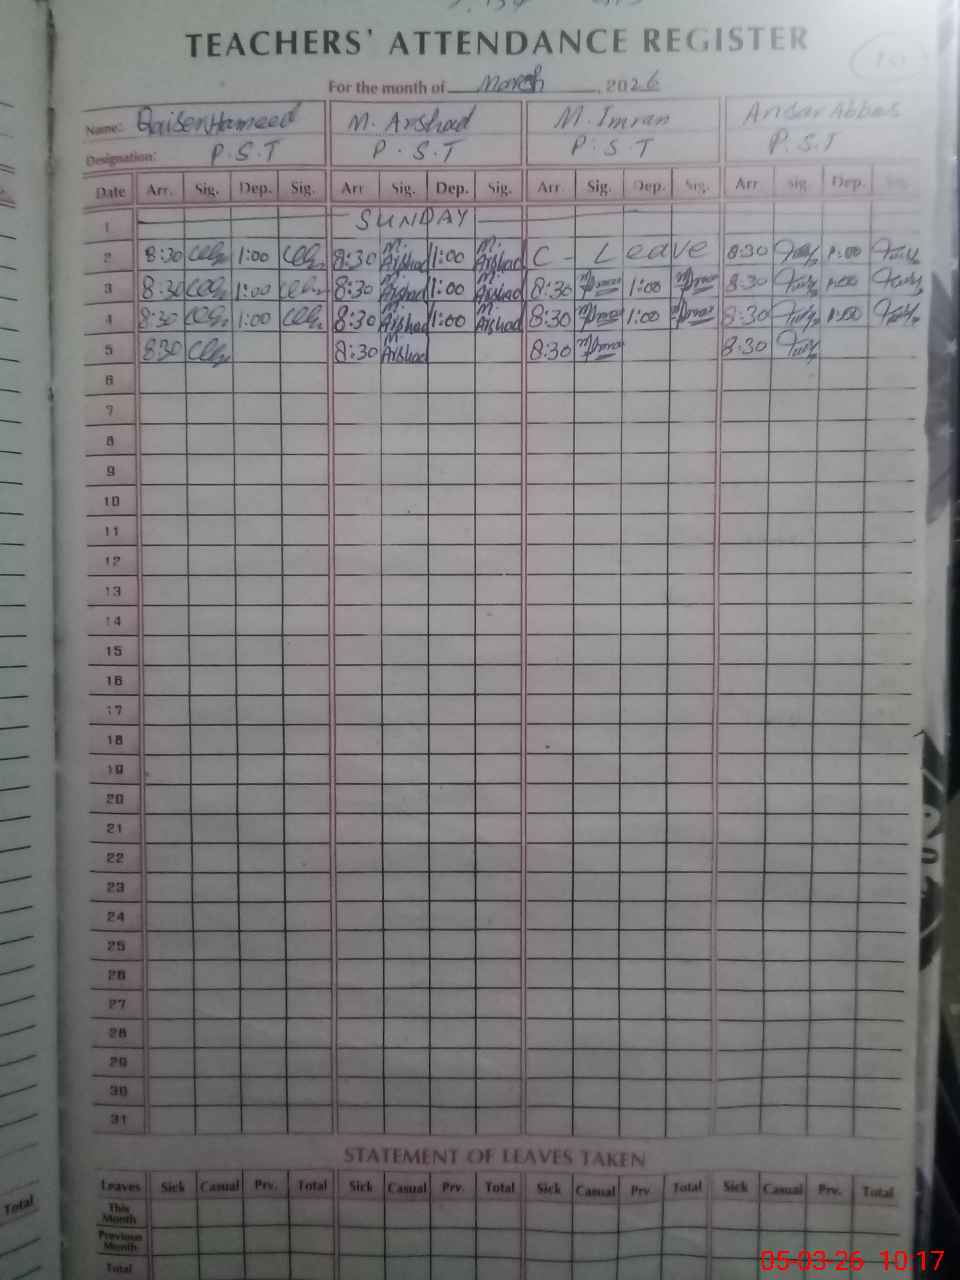 TEACHERS' ATTENDANCE REGISTER
For the month of March, 2026
Name: Qaiser Hameed M. Arshad M. Imran Ansar Abbas
Designation: P.S.T P.S.T P.S.T P.S.T
Date Arr. Sig. Dep. Sig. Arr Sig. Dep. Sig. Arr Sig. Dep. Sig. Arr Sig. Dep. Sig.
1 SUNDAY
2 8:30 1:00 8:30 M. Arshad 1:00 M. Arshad C - Leave 8:30 1:00
3 8:30 1:00 8:30 M. Arshad 1:00 M. Arshad 8:30 1:00 8:30 1:00
4 8:30 1:00 8:30 M. Arshad 1:00 M. Arshad 8:30 1:00 8:30 1:00
5 8:30 8:30 M. Arshad 8:30 8:30
6
7
8
9
10
11
12
13
14
15
16
17
18
19
20
21
22
23
24
25
26
27
28
29
30
31
STATEMENT OF LEAVES TAKEN
Leaves Sick Casual Prv. Total Sick Casual Prv. Total Sick Casual Prv Total Sick Casual Prv. Total
This Month
Previous Month
Total
Total
05-03-26 10:17